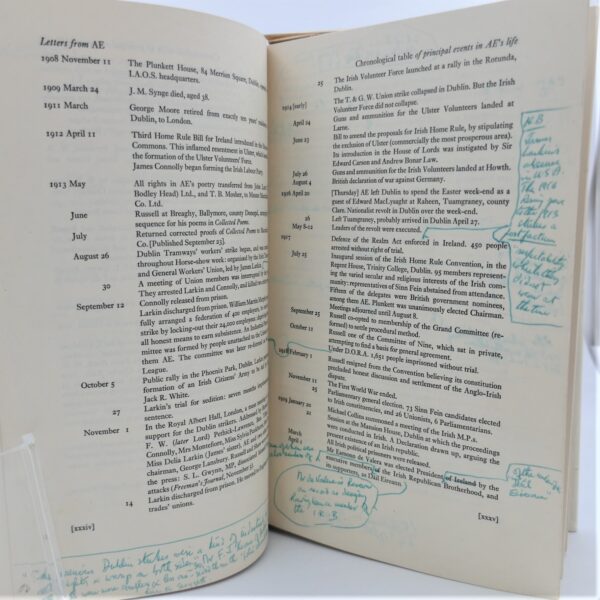 Letters from AE
1908 November 11 The Plunkett House, 84 Merrion Square, Dublin,
I.A.O.S. headquarters.
1909 March 24 J. M. Synge died, aged 38.
1911 March George Moore retired from exactly ten years'
Dublin, to London.
1912 April 11 Third Home Rule Bill for Ireland introduced in the
Commons. This inflamed resentment in Ulster, which
the formation of the Ulster Volunteers' Force.
James Connolly began forming the Irish Labour Party.
1913 May All rights in AE's poetry transferred from John Lane
Bodley Head) Ltd., and T. B. Mosher, to Messrs
Co. Ltd.
June Russell at Breaghy, Ballymore, county Donegal,
sequence for his poems in Collected Poems.
July Returned corrected proofs of Collected Poems to
Co. [Published September 23]
August 26 Dublin Tramways' workers' strike began, and was
throughout Horse-show week: organised by the Irish
and General Workers' Union, led by James Larkin
30 A meeting of Union members was interrupted
They arrested Larkin and Connolly, and killed
Connolly released from prison.
September 12 Larkin discharged from prison. William Martin Murphy
fully arranged a federation of 400 employers, to
strike by locking-out their 24,000 employees
all honest means to earn subsistence. An Industrial
mittee was formed by people unattached to the
them AE. The committee was later re-formed
League.
October 5 Public rally in the Phoenix Park, Dublin. Larkin
formation of an Irish Citizens' Army to be
Jack R. White.
27 Larkin's trial for sedition: seven months
sentence.
November 1 In the Royal Albert Hall, London, a mass
support for the Dublin strikers. Addressed by
F. W. (later Lord) Pethick-Lawrence, Mrs
Connolly, Mrs Montefiore, Miss Sylvia Pankhurst
Miss Delia Larkin (James' sister),
chairman, George Lansbury. Russell
the press: S. L. Gwynn, MP,
attacks (Freeman's Journal, November 5).
14 Larkin discharged from prison. He
trades' unions.
[xxxiv]
Chronological table of principal events in AE's life
25 The Irish Volunteer Force launched at a rally in the Rotunda,
Dublin.
1914 [early] The T. & G. W. Union strike collapsed in Dublin. But the Irish
Volunteer Force did not collapse.
April 24 Guns and ammunition for the Ulster Volunteers landed at
Larne.
June 23 Bill to amend the proposals for Irish Home Rule, by stipulating
the exclusion of Ulster (commercially the most prosperous area).
Its introduction in the House of Lords was instigated by Sir
Edward Carson and Andrew Bonar Law.
July 26 Guns and ammunition for the Irish Volunteers landed at Howth.
August 4 British declaration of war against Germany.
1916 April 20 [Thursday] AE left Dublin to spend the Easter week-end as a
guest of Edward MacLysaght at Raheen, Tuamgraney, county
Clare. Nationalist revolt in Dublin over the week-end.
26 Left Tuamgraney, probably arrived in Dublin April 27.
May 8-12 Leaders of the revolt were executed.
1917 Defence of the Realm Act enforced in Ireland. 450 people
arrested without trial.
July 25 Inaugural session of the Irish Home Rule Convention, in the
Regent House, Trinity College, Dublin. 95 members represent-
ing the varied secular and religious interests of the Irish com-
munity: representatives of Sinn Fein abstained from attendance.
Fifteen of the delegates were British government nominees,
among them AE. Plunkett was unanimously elected Chairman.
Meetings adjourned until August 8.
September 25 Russell co-opted to membership of the Grand Committee (re-
formed) to settle procedural method.
October 11 Russell one of the Committee of Nine, which sat in private,
attempting to find a basis for general agreement.
Under D.O.R.A. 1,651 people imprisoned without trial.
1918 February 1 Russell resigned from the Convention believing its constitution
precluded honest discussion and settlement of the Anglo-Irish
dispute.
November 11 The First World War ended.
25 Parliamentary general election. 73 Sinn Fein candidates elected
to Irish constituencies, and 26 Unionists, 6 Parliamentarians.
1919 January 20 Michael Collins summoned a meeting of the Irish M.P.s.
21 Session at the Mansion House, Dublin, at which the proceedings
were conducted in Irish. A Declaration drawn up, arguing the
present existence of an Irish republic.
March All Irish political prisoners were released.
April 1 Mr Eamonn de Valera was elected President of Ireland by the
executive members of the Irish Republican Brotherhood, and
its supporters, as Dail Eireann.
[xxxv]
N.B
James
Larkin's
absence
in U.S.A.
The 1916
Rising gave
the 1913
strikes a
respectability
which they
didn't
wear at
the time
Mr de Valera is
on record as denying
member of
the I.R.B.
Dáil
Eireann